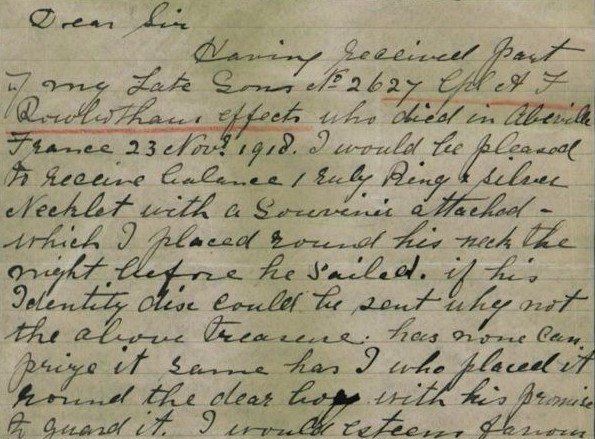 Dear Sir
Having received part
of my Late Sons No 2627 Cpl A F
Rowbothams effects who died in Abeville
France 23 Novr 1918. I would be pleased
to receive balance 1 ruby Ring & silver
Necklet with a Souvinir attached -
which I placed round his neck the
night before he sailed. if his
Identity disc could be sent why not
the above treasure. has none can
prize it same has I who placed it
round the dear boy with his promise
to guard it. I would esteem favour